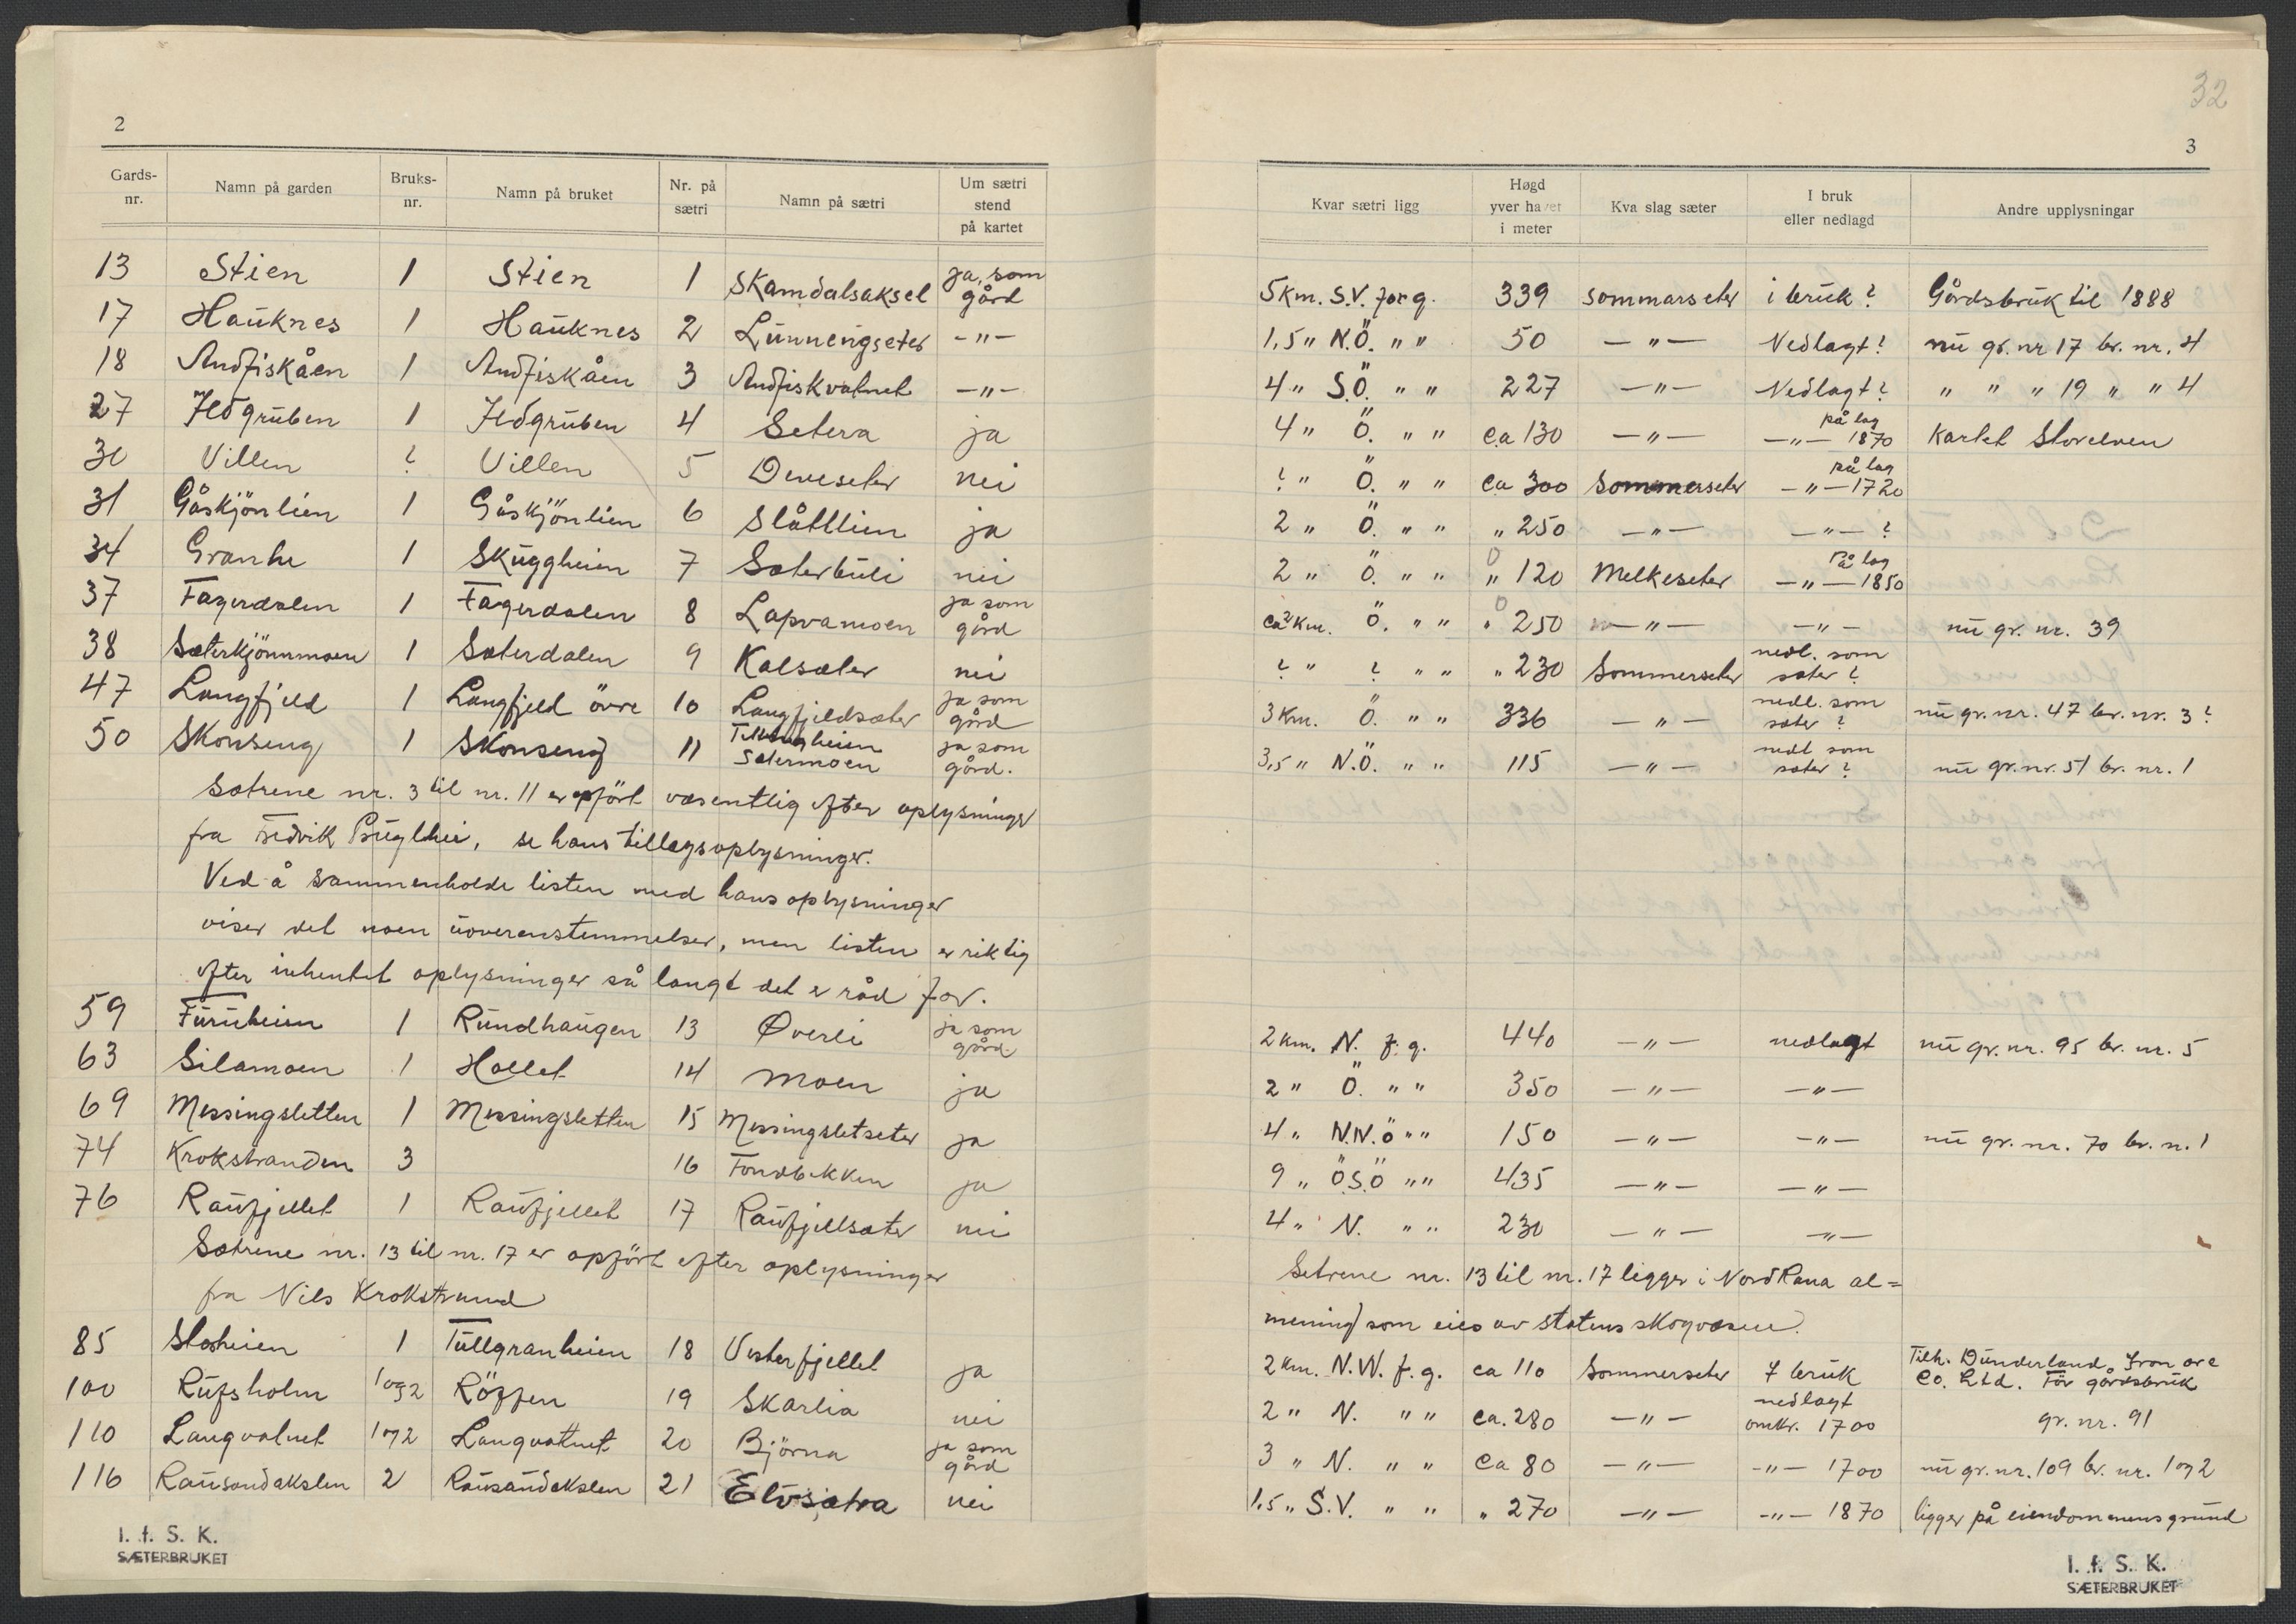 32
2
3
Gards-nr. Namn på garden Bruks-nr. Namn på bruket Nr. på sætri Namn på sætri Um sætri stend på kartet
13 Stien 1 Stien 1 Skamdalsaksel ja, som gård
17 Hauknes 1 Hauknes 2 Lunnengseter -"-
18 Andfiskåen 1 Andfiskåen 3 Andfiskvatnet -"-
27 Ildgruben 1 Ildgruben 4 Setera ja
30 Villen ? Villen 5 nei
31 Gåskjönlien 1 Gåskjönlien 6 Slåttlien ja
34 Granhe 1 Skuggheien 7 Sæterbuli nei
37 Fagerdalen 1 Fagerdalen 8 Lapvamoen ja som gård
38 Sæterkjönnmoen 1 Sæterdalen 9 Kalsæter nei
47 Langfjeld 1 Langfjeld övre 10 Langfjeldsæter ja som gård
50 Skonseng 1 Skonseng 11 Sætermoen ja som gård.
Sætrene nr. 3 til nr. 11 er opfört væsentlig efter oplysninger
fra Fredvik, se hans tillægsoplysninger.
Ved å sammenholde listen med hans oplysninger
viser det noen uoverenstemmelser, men listen er riktig
efter inhentet oplysninger så langt det er råd for.
59 Furuheien 1 Rundhaugen 13 Øverli ja som gård
63 Silamoen 1 Hollet 14 Moen ja
69 Messingsletten 1 Messingsletten 15 Messingsletseter ja
74 Krokstranden 3 16 Fondbekken ja
76 Raufjellet 1 Raufjellet 17 Raufjellsæter nei
Sætrene nr. 13 til nr. 17 er opfört efter oplysninger
fra Nils Krokstrand
85 1 Tullgranheien 18 Vesterfjellet ja
100 Rufsholm 1 og 2 Röffen 19 Skarlia nei
110 Langvatnet 1 og 2 Langvattnet 20 Björna ja som gård
116 Rausandakslen 2 Rausandakslen 21 Elvsætra nei
I. f. S. K.
SÆTERBRUKET
Kvar sætri ligg Høgd yver havet i meter Kva slag sæter I bruk eller nedlagd Andre upplysningar
5 km. S.V. for g. 339 sommarseter i bruk? Gårdsbruk til 1888
1,5 " N.Ö. " " 50 -"- Nedlagt? nu gr. nr 17 br. nr. 4
4 " S.Ö. " " 227 -"- Nedlagt? " " " 19 " " 4
4 " Ö. " " ca 130 -"- -"- på lag 1870 Kartet Storelven
? " Ö. " " ca 300 Sommerseter -"- på lag 1720
2 " Ö. " " " 250 -"- -"- ?
2 " Ö. " " " 120 Melkeseter -"- På lag 1850
ca 2 km. Ö. " " " 250 -"- -"- nu gr. nr. 39
? " ? " " " 230 Sommerseter nedl. som sæter?
3 km. Ö. " " 336 -"- nedl. som sæter? nu gr. nr. 47 br. nr. 3?
3,5 " N.Ö. " " 115 -"- nedl som sæter? nu gr. nr. 51 br. nr. 1
2 km. N. f. g. 440 -"- nedlagt nu gr. nr. 95 br. nr. 5
2 " Ö. " " 350 -"- -"-
4 " N.N.Ö " " 150 -"- -"- nu gr. nr. 70 br. n. 1
9 " Ö.S.Ö " " 435 -"- -"-
4 " N. " " 230 -"- -"-
Setrene nr. 13 til nr. 17 ligger i Nord Rana al=
mening som eies av statens skogvæsen.
2 km. N.W. f. g. ca 110 Sommerseter I bruk Tilh. Dunderland Iron ore Co. Ltd. För gårdsbruk
2 " N. " " ca. 280 -"- nedlagt omkr. 1700 gr. nr. 91
3 " N. " " ca 80 -"- -"- 1700 nu gr. nr. 109 br. nr. 1 og 2
1,5 " S.V. " " " 270 -"- -"- 1870 ligger på eiendommens grund
I. f. S. K.
SÆTERBRUKET